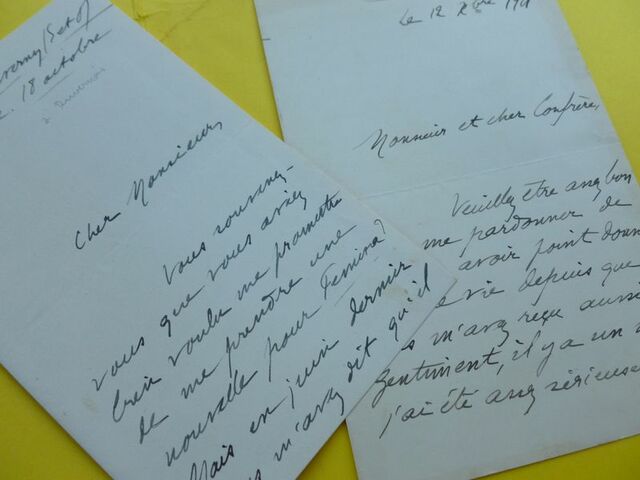 18 octobre
Cher Monsieur,
Vous souvenez-
vous que vous aviez
bien voulu me promettre
de me prendre une
nouvelle pour Femina?
Mais en juin dernier
m'avez dit qu'il
Le 12 Xbre 191
Monsieur et cher Confrère,
Veuillez être assez bon
me pardonner de
avoir point donn
vie depuis que
s m'avez reçu aussi
gentiment, il y a un
j'ai été assez sérieuse